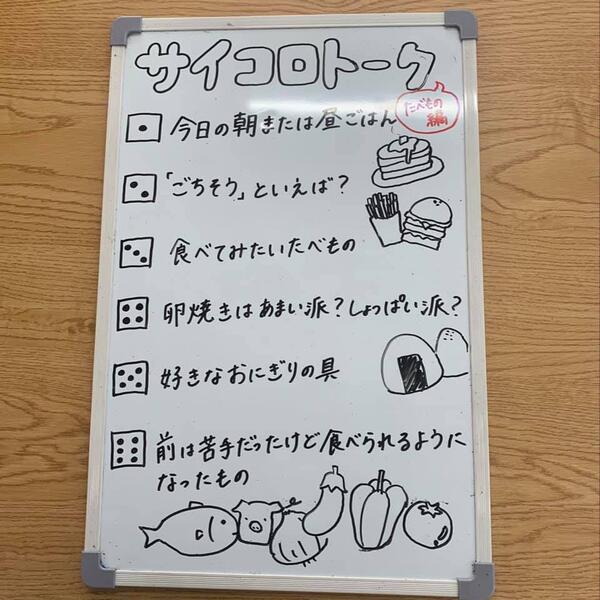 サイコロトーク
たべもの
編
今日の朝または昼ごはん
「ごちそう」といえば？
食べてみたいたべもの
卵焼きはあまい派？しょっぱい派？
好きなおにぎりの具
前は苦手だったけど食べられるように
なったもの